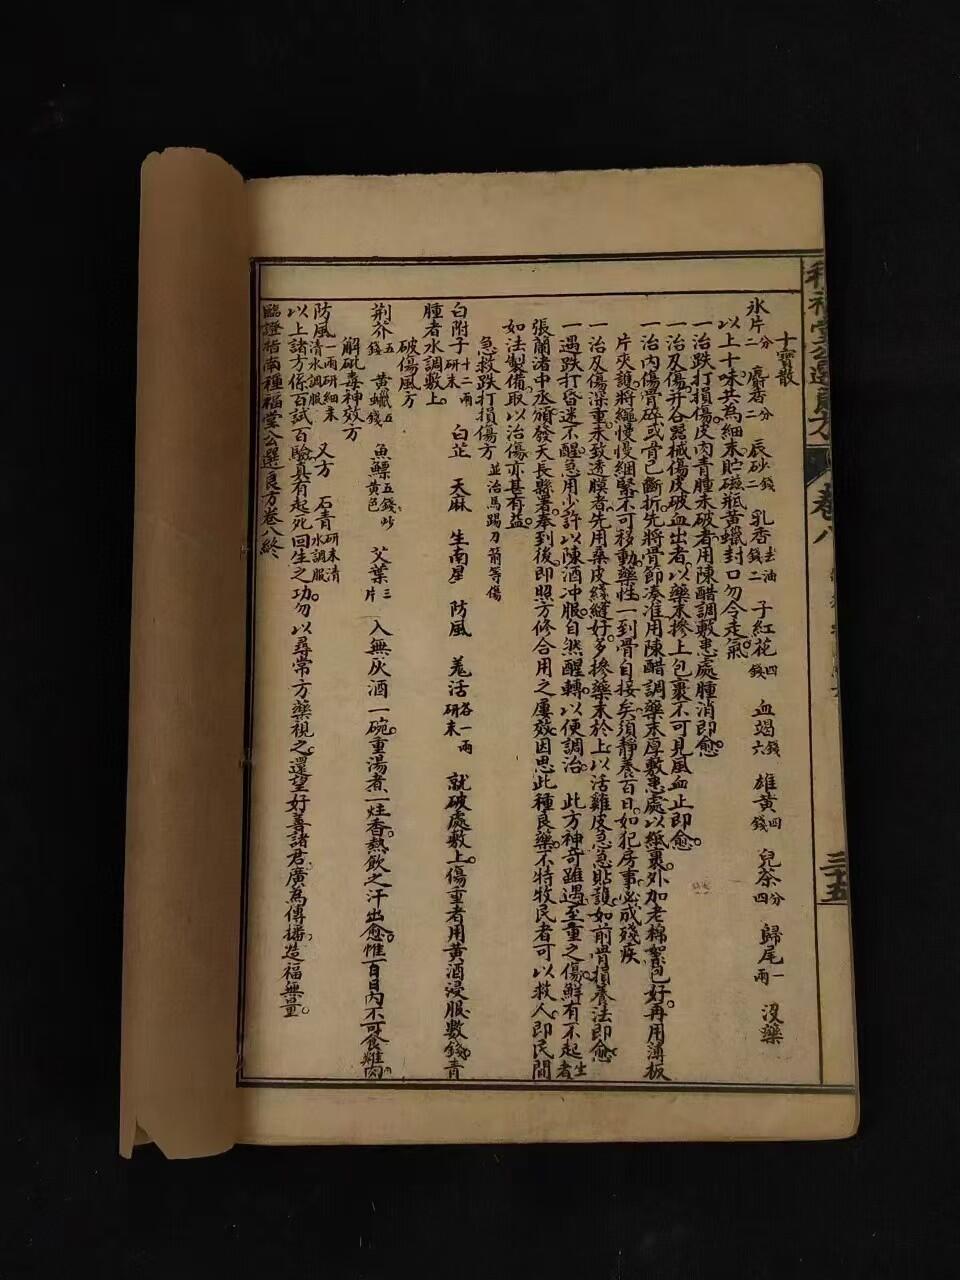 種福堂公選良方
卷八
三十五
十寶散
氷片二分 麝香二分 辰砂二錢 乳香去油二錢 子紅花四錢 血竭六錢 雄黃四錢 兒茶四分 歸尾一兩 沒藥
以上十味共為細末貯磁瓶黃蠟封口勿令走氣
一治跌打損傷皮肉青腫未破者用陳醋調敷患處腫消即愈
一治及傷并合器械傷皮破血出者以藥末摻上包裹不可見風血止即愈
一治內傷骨碎或骨已斷折先將骨節湊准用陳醋調藥末厚敷患處以紙裹外加老棉絮包好再用薄板
片夾護將繩慢慢綑緊不可移動藥性一到骨自接矣須靜養百日如犯房事必成殘疾
一治及傷深重未致透膜者先用桑皮綫縫好多摻藥末於上以活雞皮急急貼護如前骨損養法即愈
一遇跌打昏迷不醒急用少許以陳酒冲服自然醒轉以便調治 此方神奇雖遇至重之傷鮮有不起生者
張蘭渚中丞頒發天長縣署奉到後即照方修合用之屢效因思此種良藥不特牧民者可以救人即民間
如法製備取以治傷亦甚有益
急救跌打損傷方 並治馬踢刀箭等傷
白附子十二兩研末 白芷 天麻 生南星 防風 羗活各一兩研末 就破處敷上傷重者用黃酒浸服數錢青
腫者水調敷上
破傷風方
荊芥五錢 黃蠟五錢 魚鰾五錢炒黃色 艾葉三片 入無灰酒一碗重湯煮一炷香熱飲之汗出愈惟百日內不可食雞肉
解砒毒神效方
防風一兩研細末清水調服 又方 石青研末清水調服
以上諸方係百試百驗真有起死回生之功勿以尋常方藥視之還望好善諸君廣為傳播造福無量
臨證指南種福堂公選良方卷八終